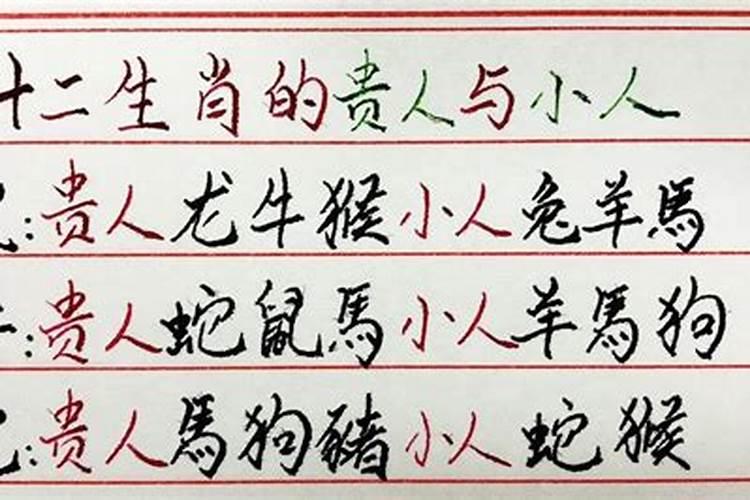 十二生肖的贵人与小人
:贵人龙牛猴小人兔羊馬
:贵人蛇鼠馬小人羊馬狗
:贵人馬狗豬小人蛇猴